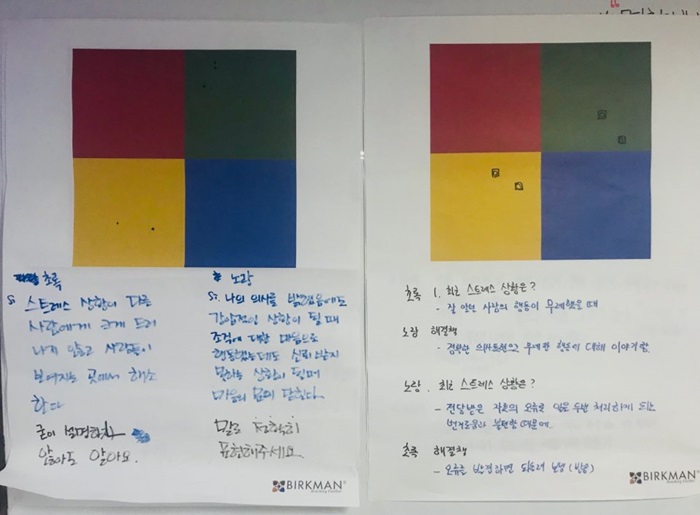 초록
S: 스트레스 상황이 다른
사람에게 크게 드러
나지 않고 사람들이
보여지는 곳에서 해소
한다
굳이 설명하지
않아도 알아요.
노랑
S: 나의 의사를 밝혔음에도
강압적인 상황이 될 때
조직에 대한 마음으로
행동했는데도 신뢰 받지
못하는 상황이 될때
마음의 문이 닫힌다.
말로 정확히
표현해주세요.
BIRKMAN
초록 1. 최근 스트레스 상황은?
- 잘 알던 사람의 행동이 무례했을 때
노랑 해결책
- 정확한 의사표현으로 무례한 행동에 대해 이야기함.
노랑. 최근 스트레스 상황은?
- 전달받은 자료의 오류로 일을 두번 처리하게 되는
번거로움과 불편함 때문에.
초록 해결책
- 오류를 발견하면 되돌려 보냄 (반송)
BIRKMAN